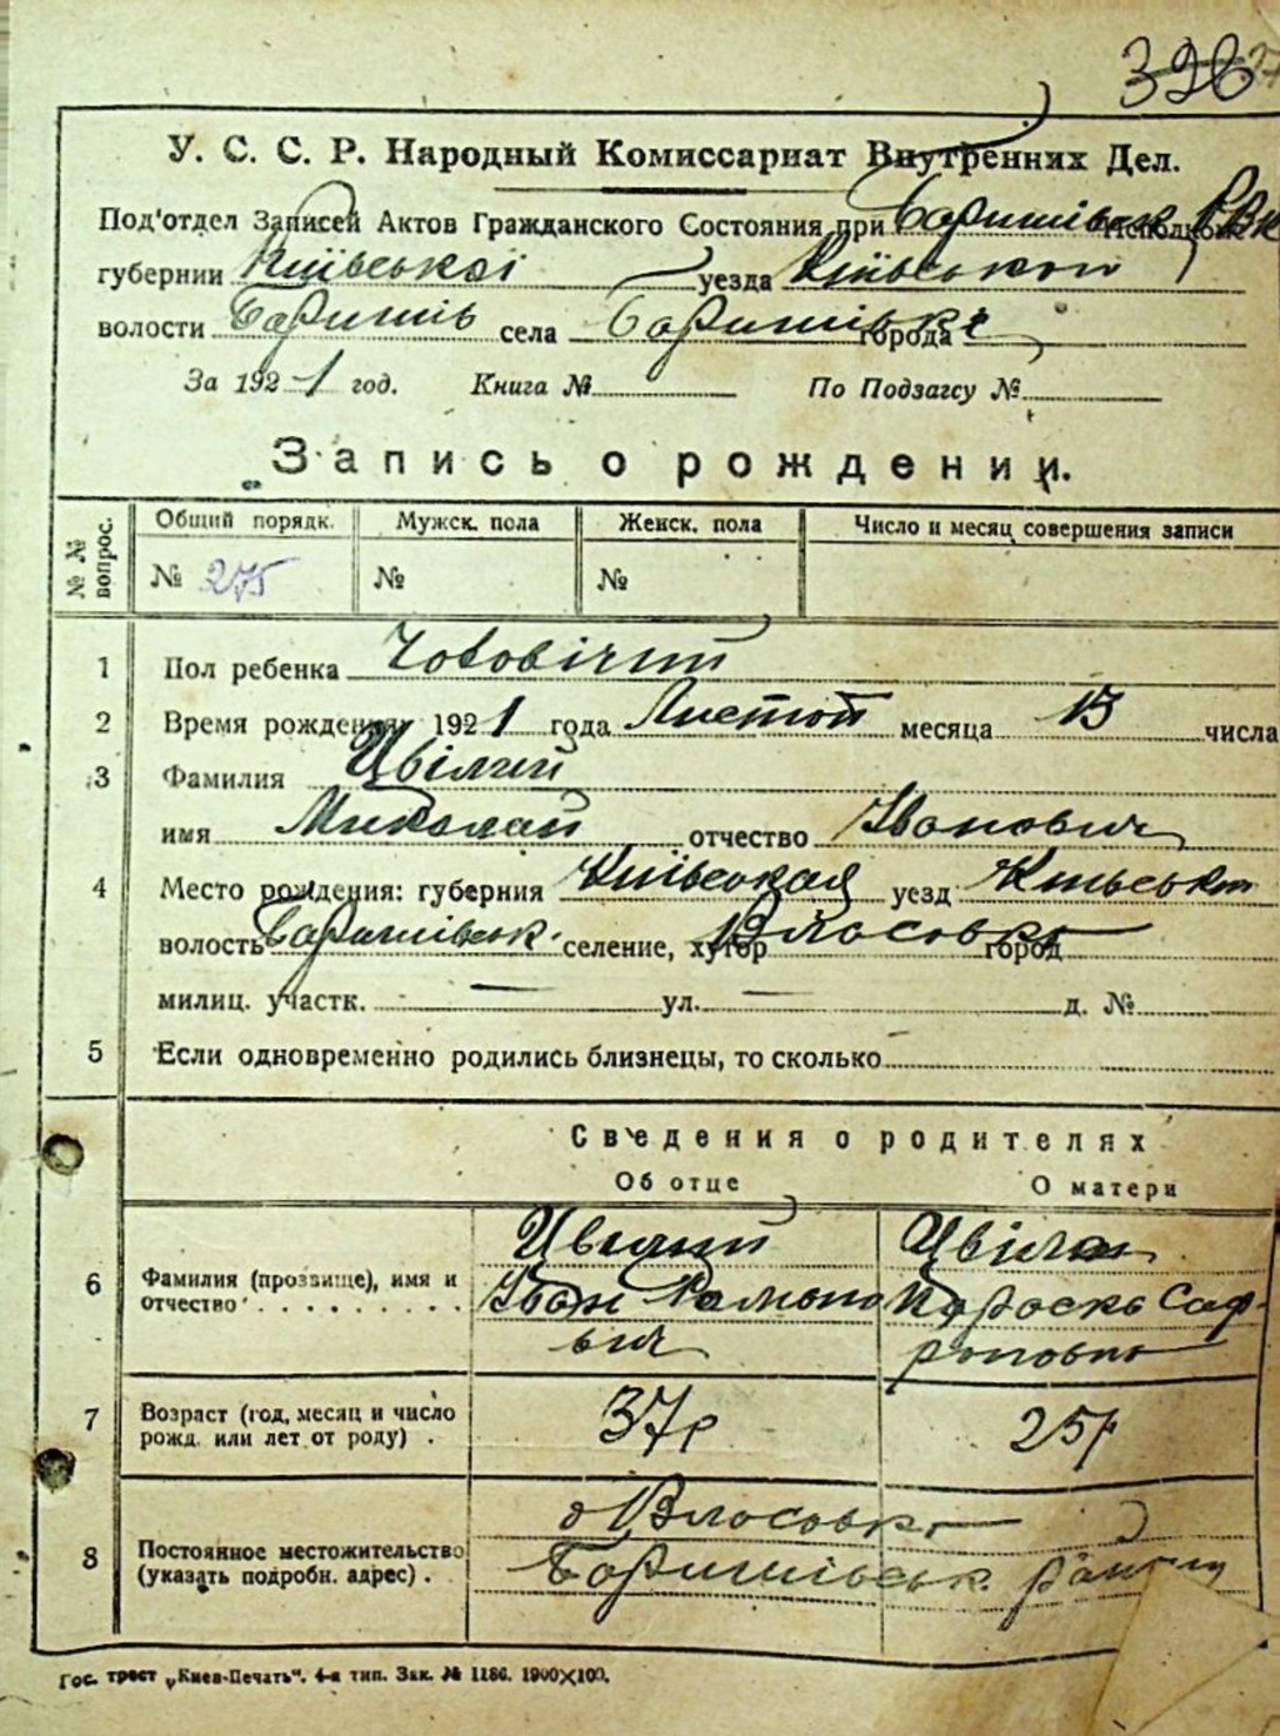 326
У. С. С. Р. Народный Комиссариат Внутренних Дел.
Под'отдел Записей Актов Гражданского Состояния при Баришівськ. РВК
губернии Київської уезда Київського
волости Баришів села Баришівка города
За 1921 год. Книга № По Подзагсу №
Запись о рождении.
№№ вопрос. Общий порядк. Мужск. пола Женск. пола Число и месяц совершения записи
№ 275 № №
1 Пол ребенка Чоловічий
2 Время рождения: 1921 года Листоп месяца 13 числа
3 Фамилия Цвілий
имя Миколай отчество Іванович
4 Место рождения: губерния Київськая уезд Київськ
волость Баришівськ. селение, хутор Власовка город
милиц. участк. — ул. — д. №
5 Если одновременно родились близнецы, то сколько
Сведения о родителях
Об отце О матери
Цвилий Цвіла
6 Фамилия (прозвище), имя и отчество Іван Романо Параска Саф-
вич роновна
7 Возраст (год, месяц и число рожд. или лет от роду) . 37р 25р
с Власовка
8 Постоянное местожительство (указать подробн. адрес) . Баришівськ. району
Гос. трест „Киев-Печать". 4-я тип. Зак. № 1186. 1900×100.